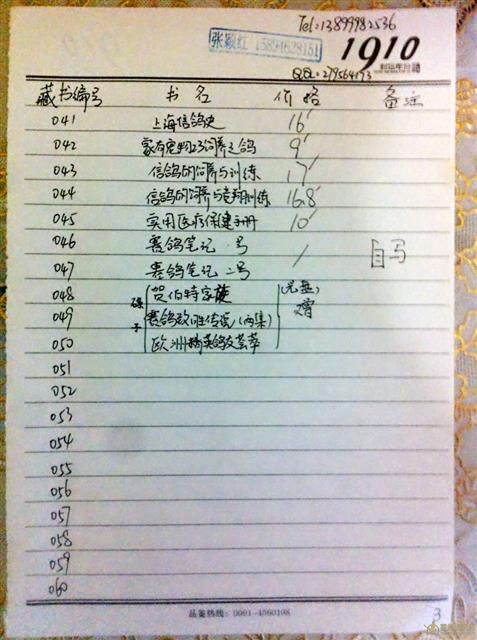 Tel:13899982536
张颖红 15894629151
1910
QQ:279564173
藏书编号 书名 价格 备注
041 上海信鸽史 16
042 家有宠物23饲养之鸽 9
043 信鸽的饲养与训练 17
044 信鸽的饲养与竞翔训练 16.8
045 实用医疗保健手册 10
046 赛鸽笔记一号 / 自写
047 赛鸽笔记二号
048 贺伯特家族 (光盘)
049 碟子 赛鸽致胜传说(两集) 赠
050 欧洲精英鸽友荟萃
051
052
053
054
055
056
057
058
059
060
品鉴热线：0991-4560198
3